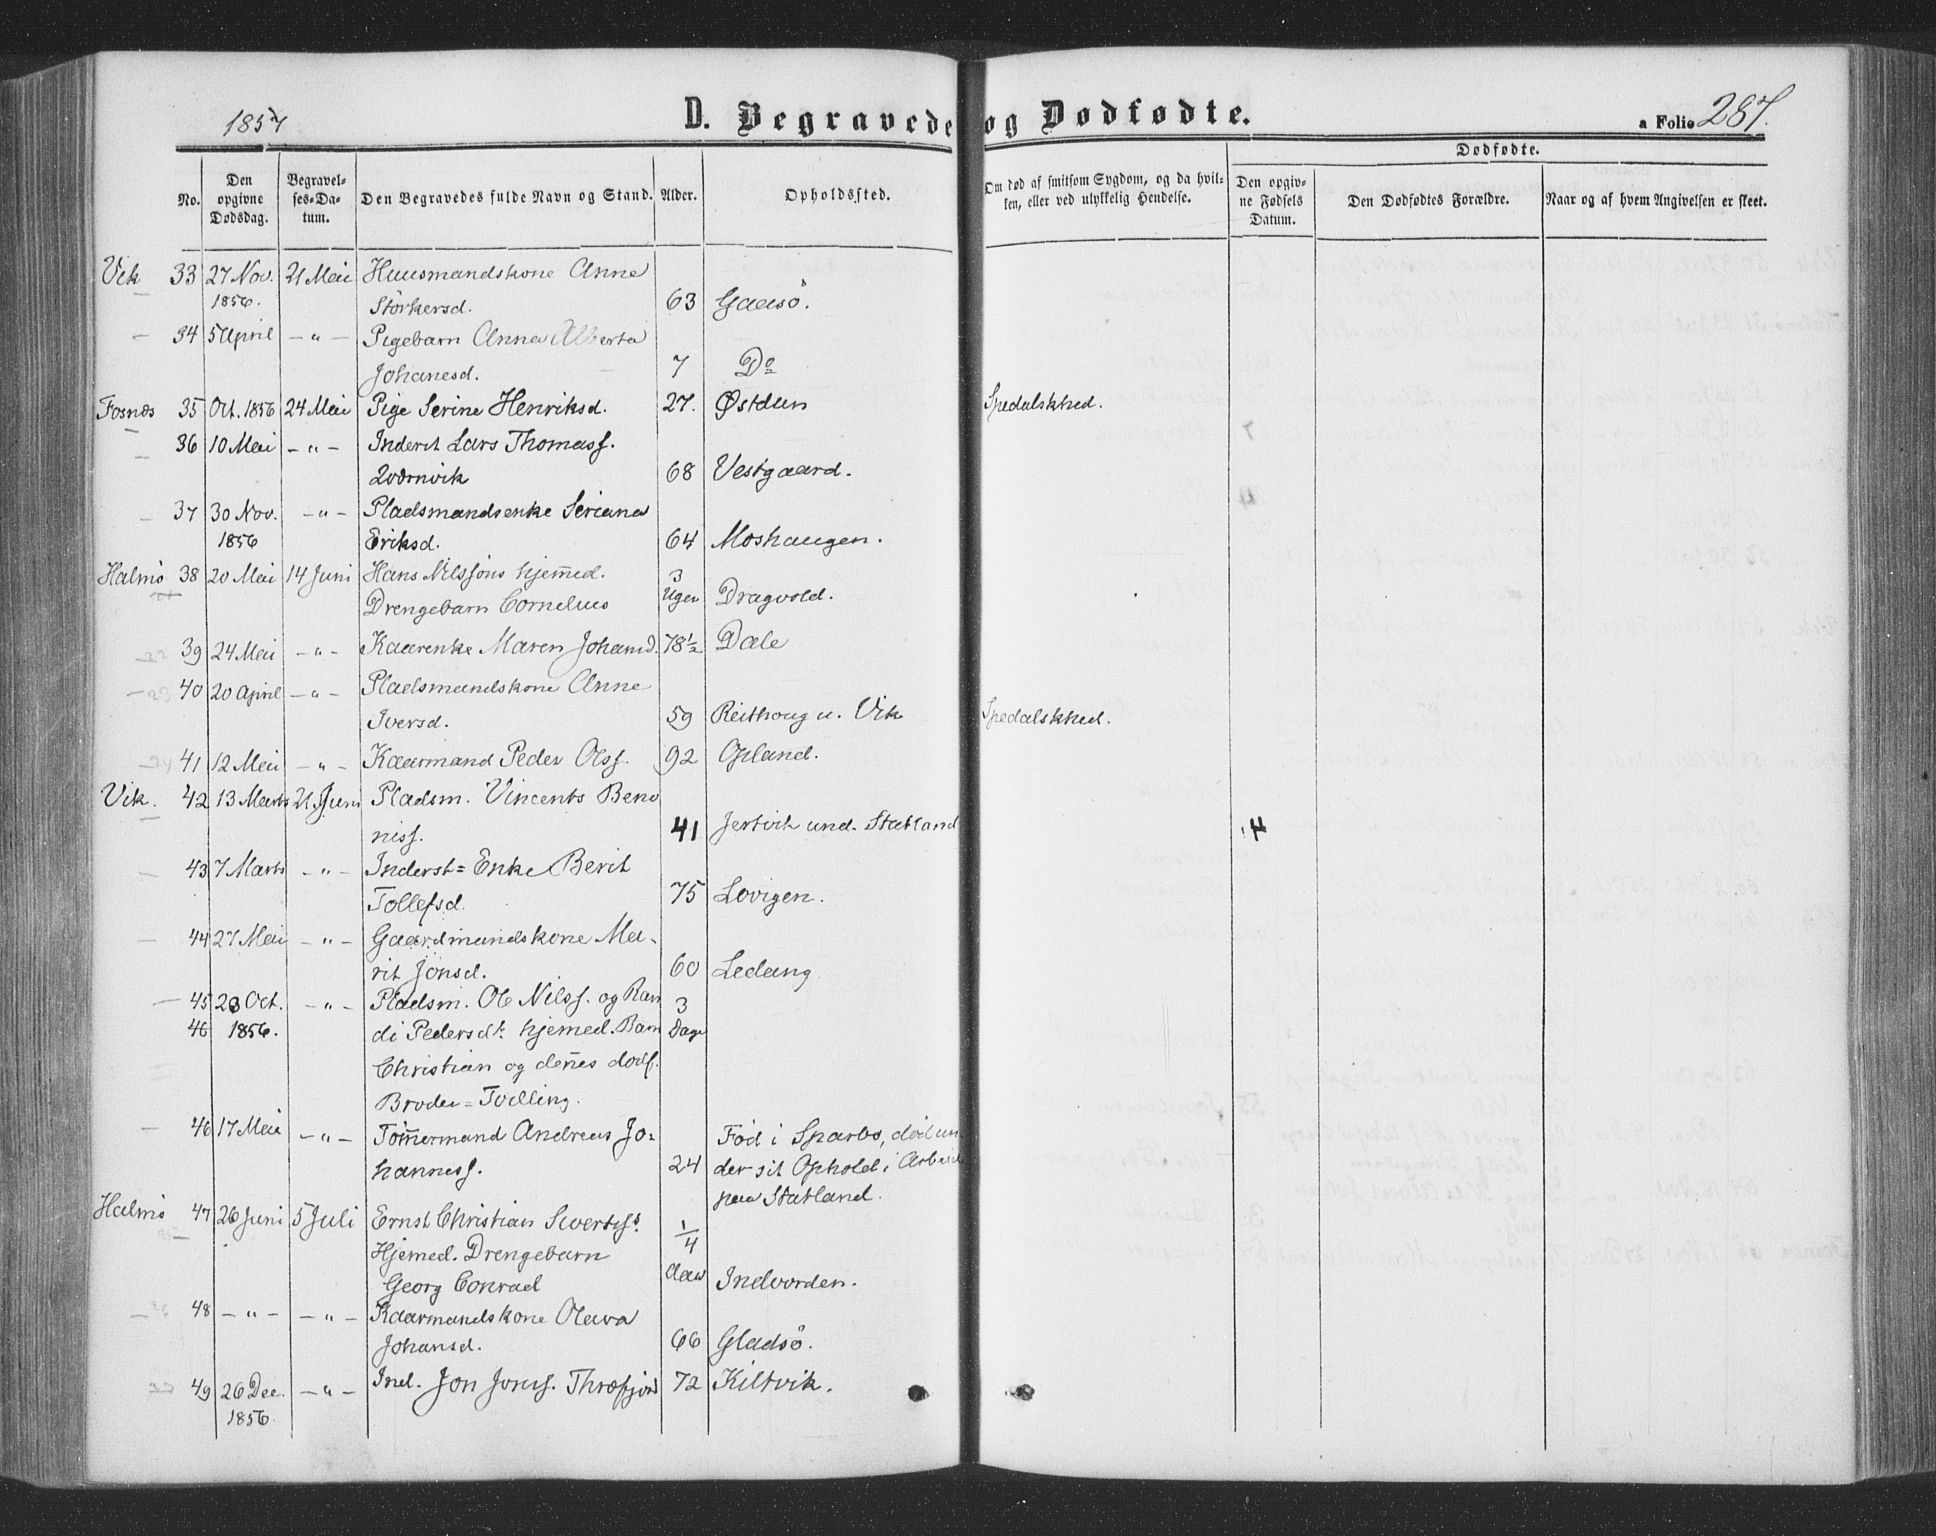 1857
D. Begravede og Dødfødte.
a Folio 287.
No.
Den opgivne Dødsdag.
Begravelses-Datum.
Den Begravedes fulde Navn og Stand.
Alder.
Opholdssted.
Om død af smitsom Sygdom, og da hvilken, eller ved ulykkelig Hendelse.
Dødfødte.
Den opgivne Fødsels Datum.
Den Dødfødtes Forældre.
Naar og af hvem Angivelsen er skeet.
Vik 33 27 Nov. 21 Mai Huusmandskone Anne
1856. Störkersd. 63 Gaasö.
— 34 5 April — „ — Pigebarn Anna Alberta
Johanesd. 7 Do
Fosnæs 35 Oct. 1856 24 Mai Pige Serine Henriksd. 27. Østdun Spedalskhed.
— 36 10 Mai — „ — Inderst Lars Thomass.
Qværnvik 68 Vestgaard.
— 37 30 Nov. — „ — Pladsmandsenke Seriana
1856 Eriksd. 64 Moshaugen.
Halmö 38 20 Mai 14 Juni Hans Nilssöns hjemed. 3
Drengebarn Cornelius Uger Dragvold.
39 24 Mai — „ — Kaarenke Maren Johansd. 78½ Dale
40 20 April — „ — Pladsmandskone Anne
Iversd. 59 Reithoug u. Vik Spedalskhed.
41 12 Mai — „ — Kaarmand Peder Olss. 92 Opland.
Vik. 42 13 Marts 21 Juni Pladsm. Vincents Beno
niss. 41 Jertvik und. Statland
— 43 7 Marts — „ — Inderst= Enke Berit
Tollefsd. 75 Lovigen.
— 44 27 Mai — „ — Gaardmandskone Ma-
rit Jonsd. 60 Ledang
— 45 23 Oct. — „ — Pladsm. Ol Nilss. og Ran 3
46 1856. di Pedersdt. hjemed. Barn Dage
Christian og denes dødf.
Broder= Tvilling.
— 46 17 Mai — „ — Tömmermand Andreas Jo= Fød i Sparbo, död un
hanness. 24 der sit Ophold i Arbeid
paa Statland.
Halmö 47 26 Juni 5 Juli Ernst Christian Sivertss. 1/4
Hjemed. Drengebarn
Georg Conrad Indvorden.
48 — „ — — „ — Kaarmandskone Olava
Johansd. 66 Gladsö.
49 26 Dec. — „ — Ind. Jon Jonss. Thrøfjord 72 Kiltvik.
1856.